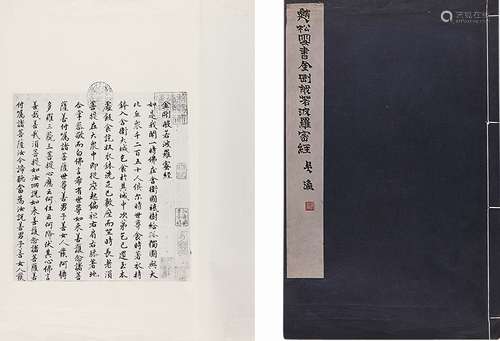 金剛般若波羅蜜經
如是我聞一時佛在舍衛國祇樹給孤獨園與大
比丘衆千二百五十人俱尔時世尊食時著衣持
鉢入舍衛大城乞食於其城中次第乞已還至本
處飯食訖收衣鉢洗足已敷座而坐時長老須
菩提在大衆中即從座起偏袒右肩右膝著地
合掌恭敬而白佛言希有世尊如来善護念諸菩
薩善付囑諸菩薩世尊善男子善女人發阿耨
多羅三藐三菩提心應云何住云何降伏其心佛言
善哉善哉須菩提如汝所説如来善護念諸菩薩善
付囑諸菩薩汝今諦聽當為汝説善男子善女人發
趙松雪書金剛般若波羅蜜經